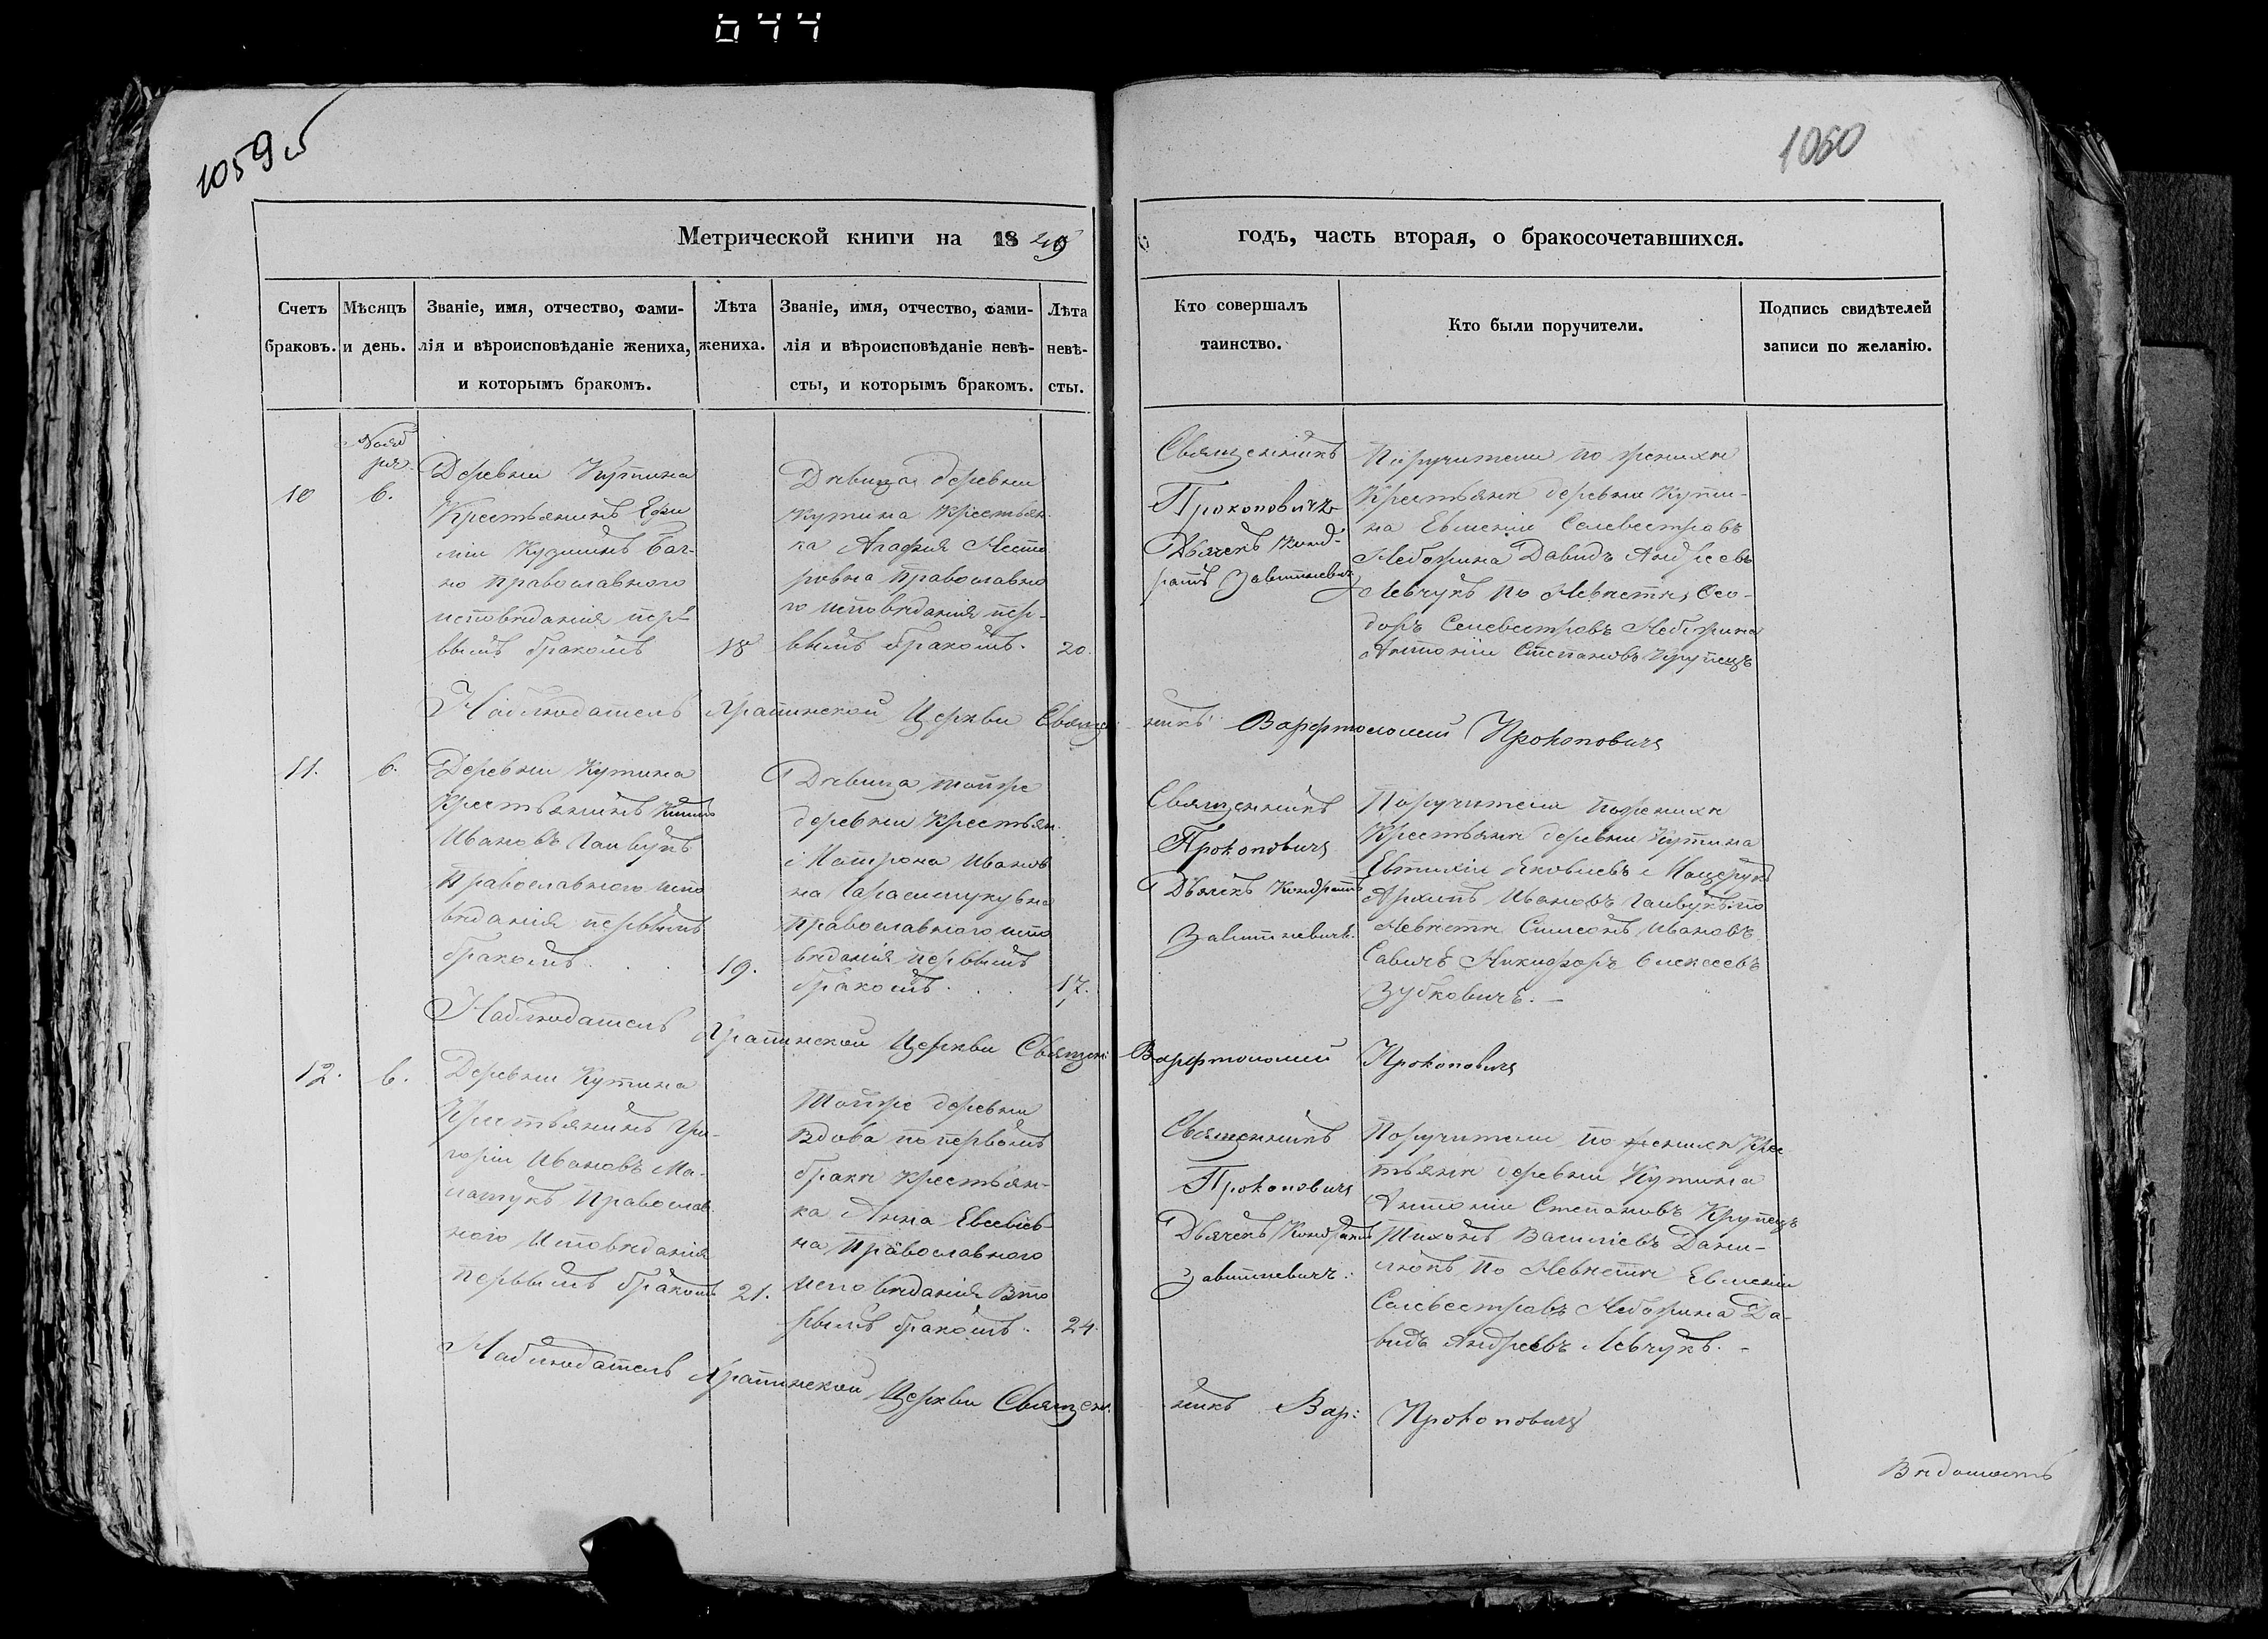 644
1059 об
1060
Метрической книги на 1849
годъ, часть вторая, о бракосочетавшихся.
Счетъ браковъ.
Мѣсяцъ и день.
Званіе, имя, отчество, фами-
лія и вѣроисповѣданіе жениха,
и которымъ бракомъ.
Лѣта
жениха.
Званіе, имя, отчество, фами-
лія и вѣроисповѣданіе невѣ-
сты, и которымъ бракомъ.
Лѣта
невѣ-
сты.
Кто совершалъ
таинство.
Кто были поручители.
Подпись свидѣтелей
записи по желанію.
10
Нояб
ря
6.
Деревни Кутина
Крестьянинъ Ефи
мій
Православного
исповѣданія пер
вымъ бракомъ
18
Дѣвица деревни
Кутина Крестьян
ка Агафія Несто
ровна Православно
го исповѣданія пер-
вымъ бракомъ.
20.
Священникъ
Прокоповичъ
Дьячекъ Конд-
ратъ Завитневич
Поручители по женихѣ
Крестьяне деревни Кути-
на Евменій Селевестровъ
Небожина Давидъ Андреевъ
Левчукъ по Невѣстѣ Ѳео-
доръ Селевестровъ Небожина
Антоній Степановъ Крупецъ
Наблюдатель Церкви Священ
никъ Варфоломей Прокоповичъ
11.
6.
Деревни Кутина
Крестьянинъ
Ивановъ
Православного испо
вѣданія первымъ
бракомъ
19.
Дѣвица тойже
деревни Крестьян
Матрона Иванов
на Герасимукувна
Православного испо
вѣданія первымъ
бракомъ.
17.
Священникъ
Прокоповичъ
Дьячекъ Кондратъ
Завитневичъ.
Поручители по женихѣ
Крестьяне деревни Кутина
Евтихій Яковлевъ Мацерукъ
Архипъ Ивановъ по
Невѣстѣ Симеонъ Ивановъ
Савичъ Никифоръ Алексеевъ
Зубковичъ.
Наблюдатель Церкви Священ:
Варфоломей Прокоповичъ
12.
6.
Деревни Кутина
Крестьянинъ Гри-
горій Ивановъ Ма-
Православ
ного Исповѣданія
первымъ бракомъ
21.
Тойже деревни
Вдова по первомъ
бракѣ Крестьян-
ка Анна Евсевіев
на Православного
исповѣданія Вто
рымъ бракомъ.
24.
Священникъ
Прокоповичъ
Дьячекъ Кондратъ
Завитневичъ:
Поручители по женихѣ Крес
тьяне деревни Кутина
Антоній Степановъ Крупецъ
Тихонъ Василіевъ Дани-
люкъ по Невѣстѣ Евменій
Селевестровъ Небожина Да-
видъ Андреевъ Левчукъ.
Наблюдатель Церкви Священ
никъ Вар: Прокоповичъ
Вѣдомость